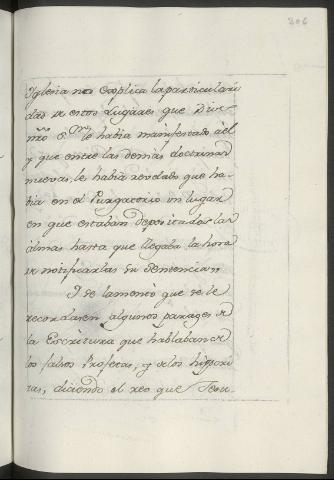 306
Yglesia nos explica la particulari
dad de estos Lugares que Dixe
nr̃o S.or le habia manifestado àel
y que entre las demàs doctrinas
nuevas, le habia revelado que ha-
bia en el Purgatorio un lugar
en que estaban depositadas las
almas hasta que llegaba la hora
de notificarlas su Sentencia,,
Y se lamentò que se le
recordasen algunos parages de
la Escritura que hablaban de
los falsos Profetas, y delos hippocri
tas, diciendo el reo que Jesu-